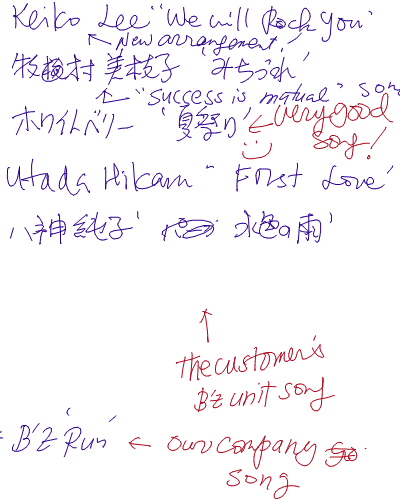 Keiko Lee "We will Rock You"
New arrangement!
牧村 美枝子 「みちづれ」
"Success is mutual" song
ホワイトベリー 「夏祭り」
very good song!
Utada Hikaru "First Love"
八神純子 「水色の雨」
the customer's
B'z unit song
B'z "Run"
our company
song